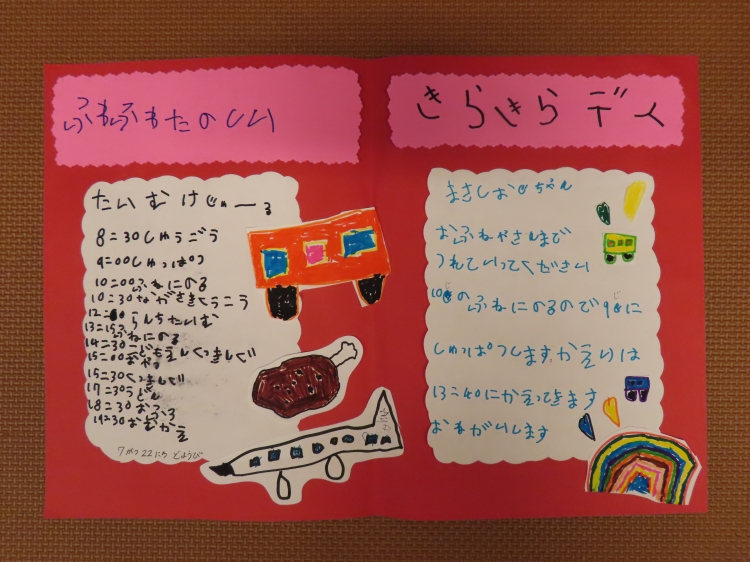 ふわふわたのしい
たいむけじゅーる
8:30しゅうごう
9:00しゅっぱつ
10:00ふねにのる
10:30ながさきくうこう
12:00らんちたいむ
13:15ふねにのる
14:30こどもえんくっきんぐ
15:00おやつ
15:30くっきんぐ
17:30うどん
18:30おふろ
19:30おむかえ
7がつ22にちどようび
きらきらデイ
まさしおじちゃん
おふねやさんまで
つれていってください
10じのふねにのるので9じに
しゅっぱつします。かえりは
13:40にかえってきます
おねがいします